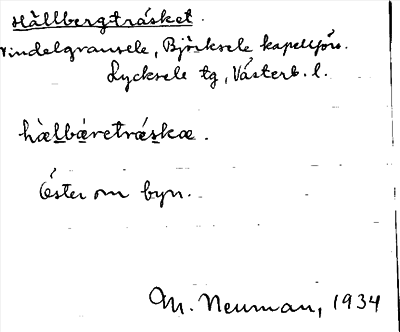 Hällbergträsket.
Vindelgransele, Björksele kapellförs.
Lycksele tg, Västerb. l.
hälbäreträskæ.
Öster om byn.
M. Neuman, 1934